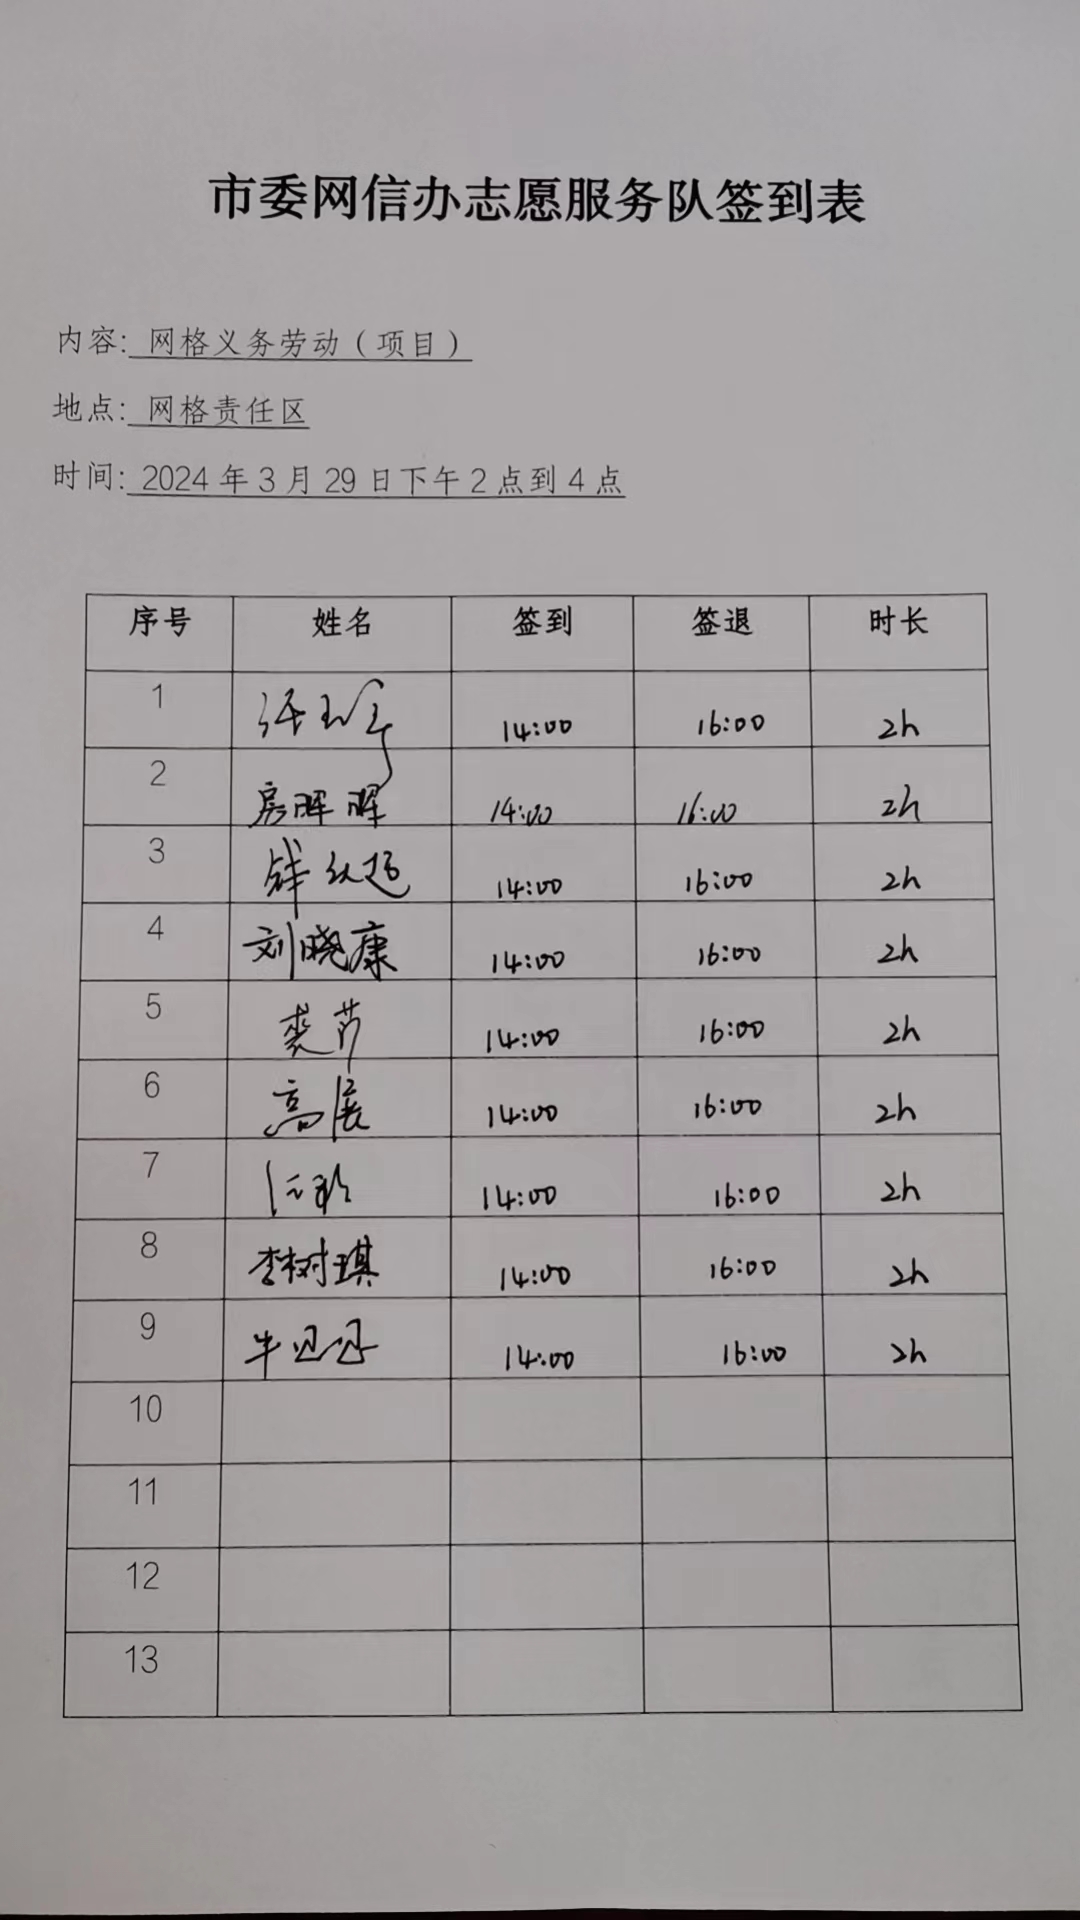 市委网信办志愿服务队签到表
内容: 网格义务劳动（项目）
地点: 网格责任区
时间: 2024年3月29日下午2点到4点
序号 姓名 签到 签退 时长
1 14:00 16:00 2h
2 房晖晖 14:00 16:00 2h
3 14:00 16:00 2h
4 刘晓康 14:00 16:00 2h
5 14:00 16:00 2h
6 高展 14:00 16:00 2h
7 14:00 16:00 2h
8 李树琪 14:00 16:00 2h
9 14:00 16:00 2h
10
11
12
13